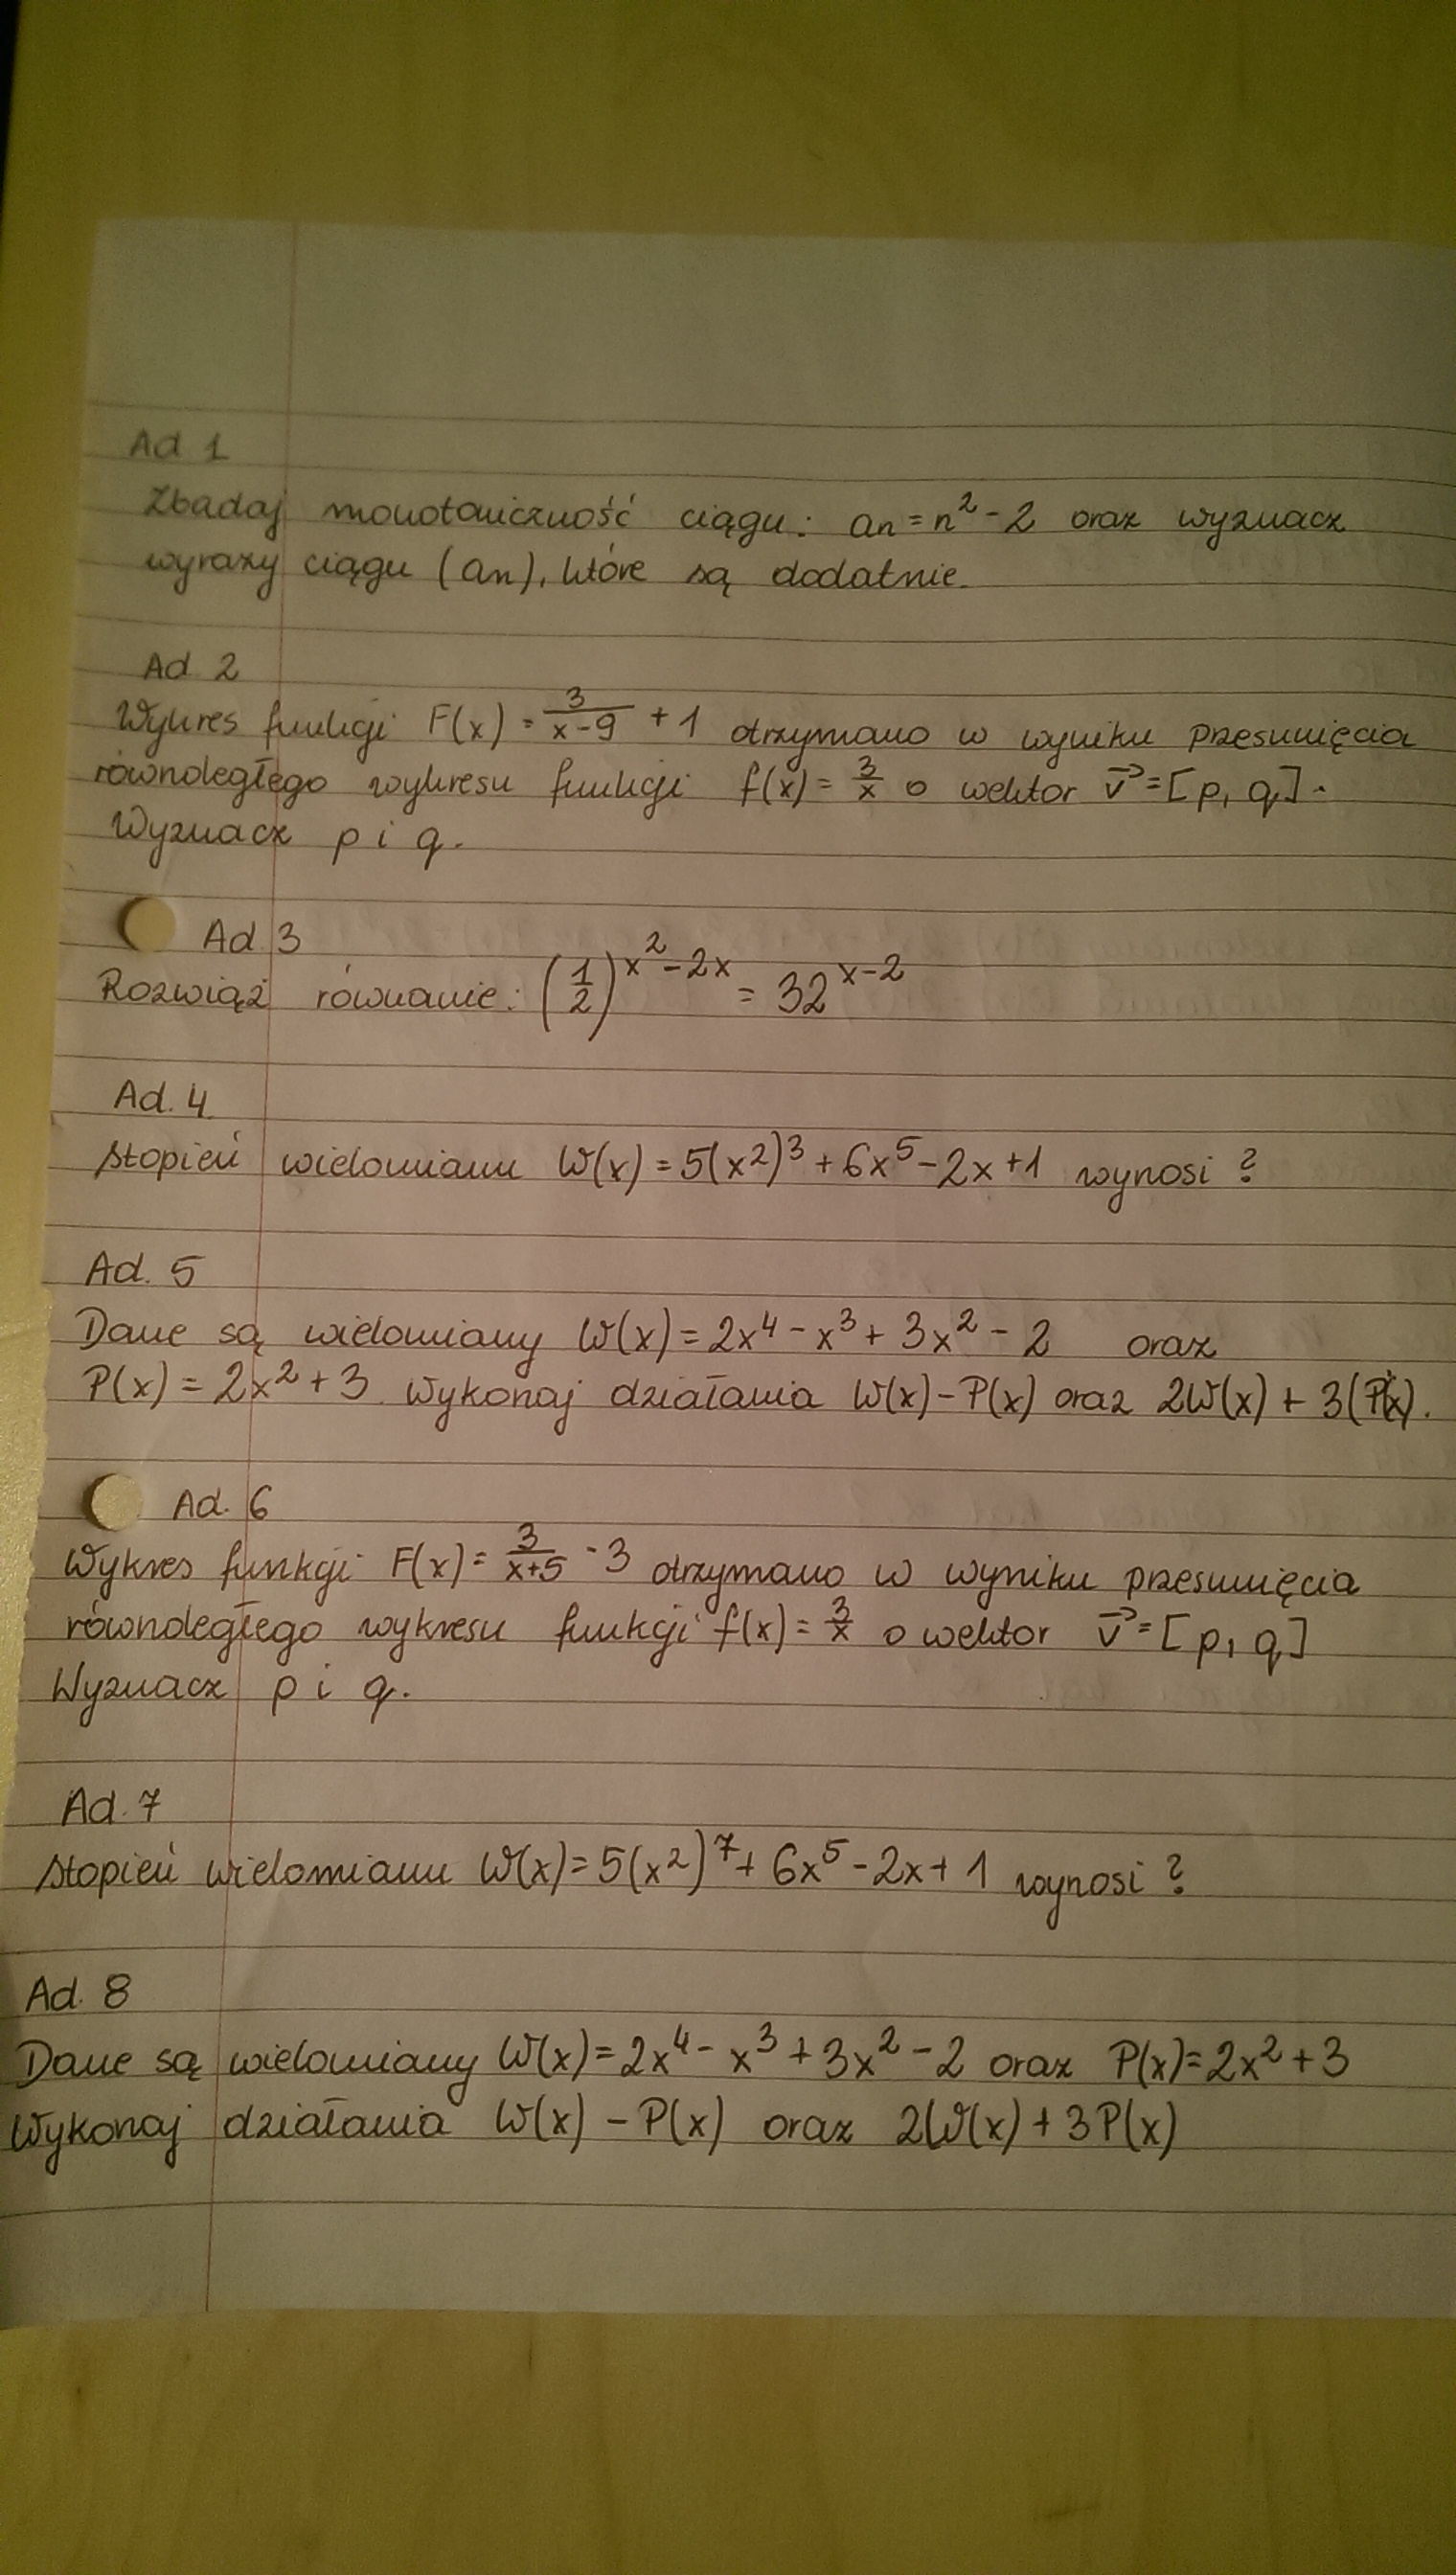 Ad 1
Zbadaj monotoniczność ciągu: an = n² - 2 oraz wyznacz
wyrazy ciągu (an), które są dodatnie.
Ad. 2
Wykres funkcji F(x) = 3/(x-9) + 1 otrzymano w wyniku przesunięcia
równoległego wykresu funkcji f(x) = 3/x o wektor v⃗ = [p, q].
Wyznacz p i q.
Ad. 3
Rozwiąż równanie: (1/2)^(x²-2x) = 32^(x-2)
Ad. 4.
Stopień wielomianu W(x) = 5(x²)³ + 6x⁵ - 2x + 1 wynosi ?
Ad. 5
Dane są wielomiany W(x) = 2x⁴ - x³ + 3x² - 2 oraz
P(x) = 2x² + 3. Wykonaj działania W(x) - P(x) oraz 2W(x) + 3(P(x).
Ad. 6
Wykres funkcji F(x) = 3/(x+5) - 3 otrzymano w wyniku przesunięcia
równoległego wykresu funkcji f(x) = 3/x o wektor v⃗ = [p, q]
Wyznacz p i q.
Ad. 7
Stopień wielomianu W(x) = 5(x²)⁷ + 6x⁵ - 2x + 1 wynosi ?
Ad. 8
Dane są wielomiany W(x) = 2x⁴ - x³ + 3x² - 2 oraz P(x) = 2x² + 3
Wykonaj działania W(x) - P(x) oraz 2W(x) + 3P(x)